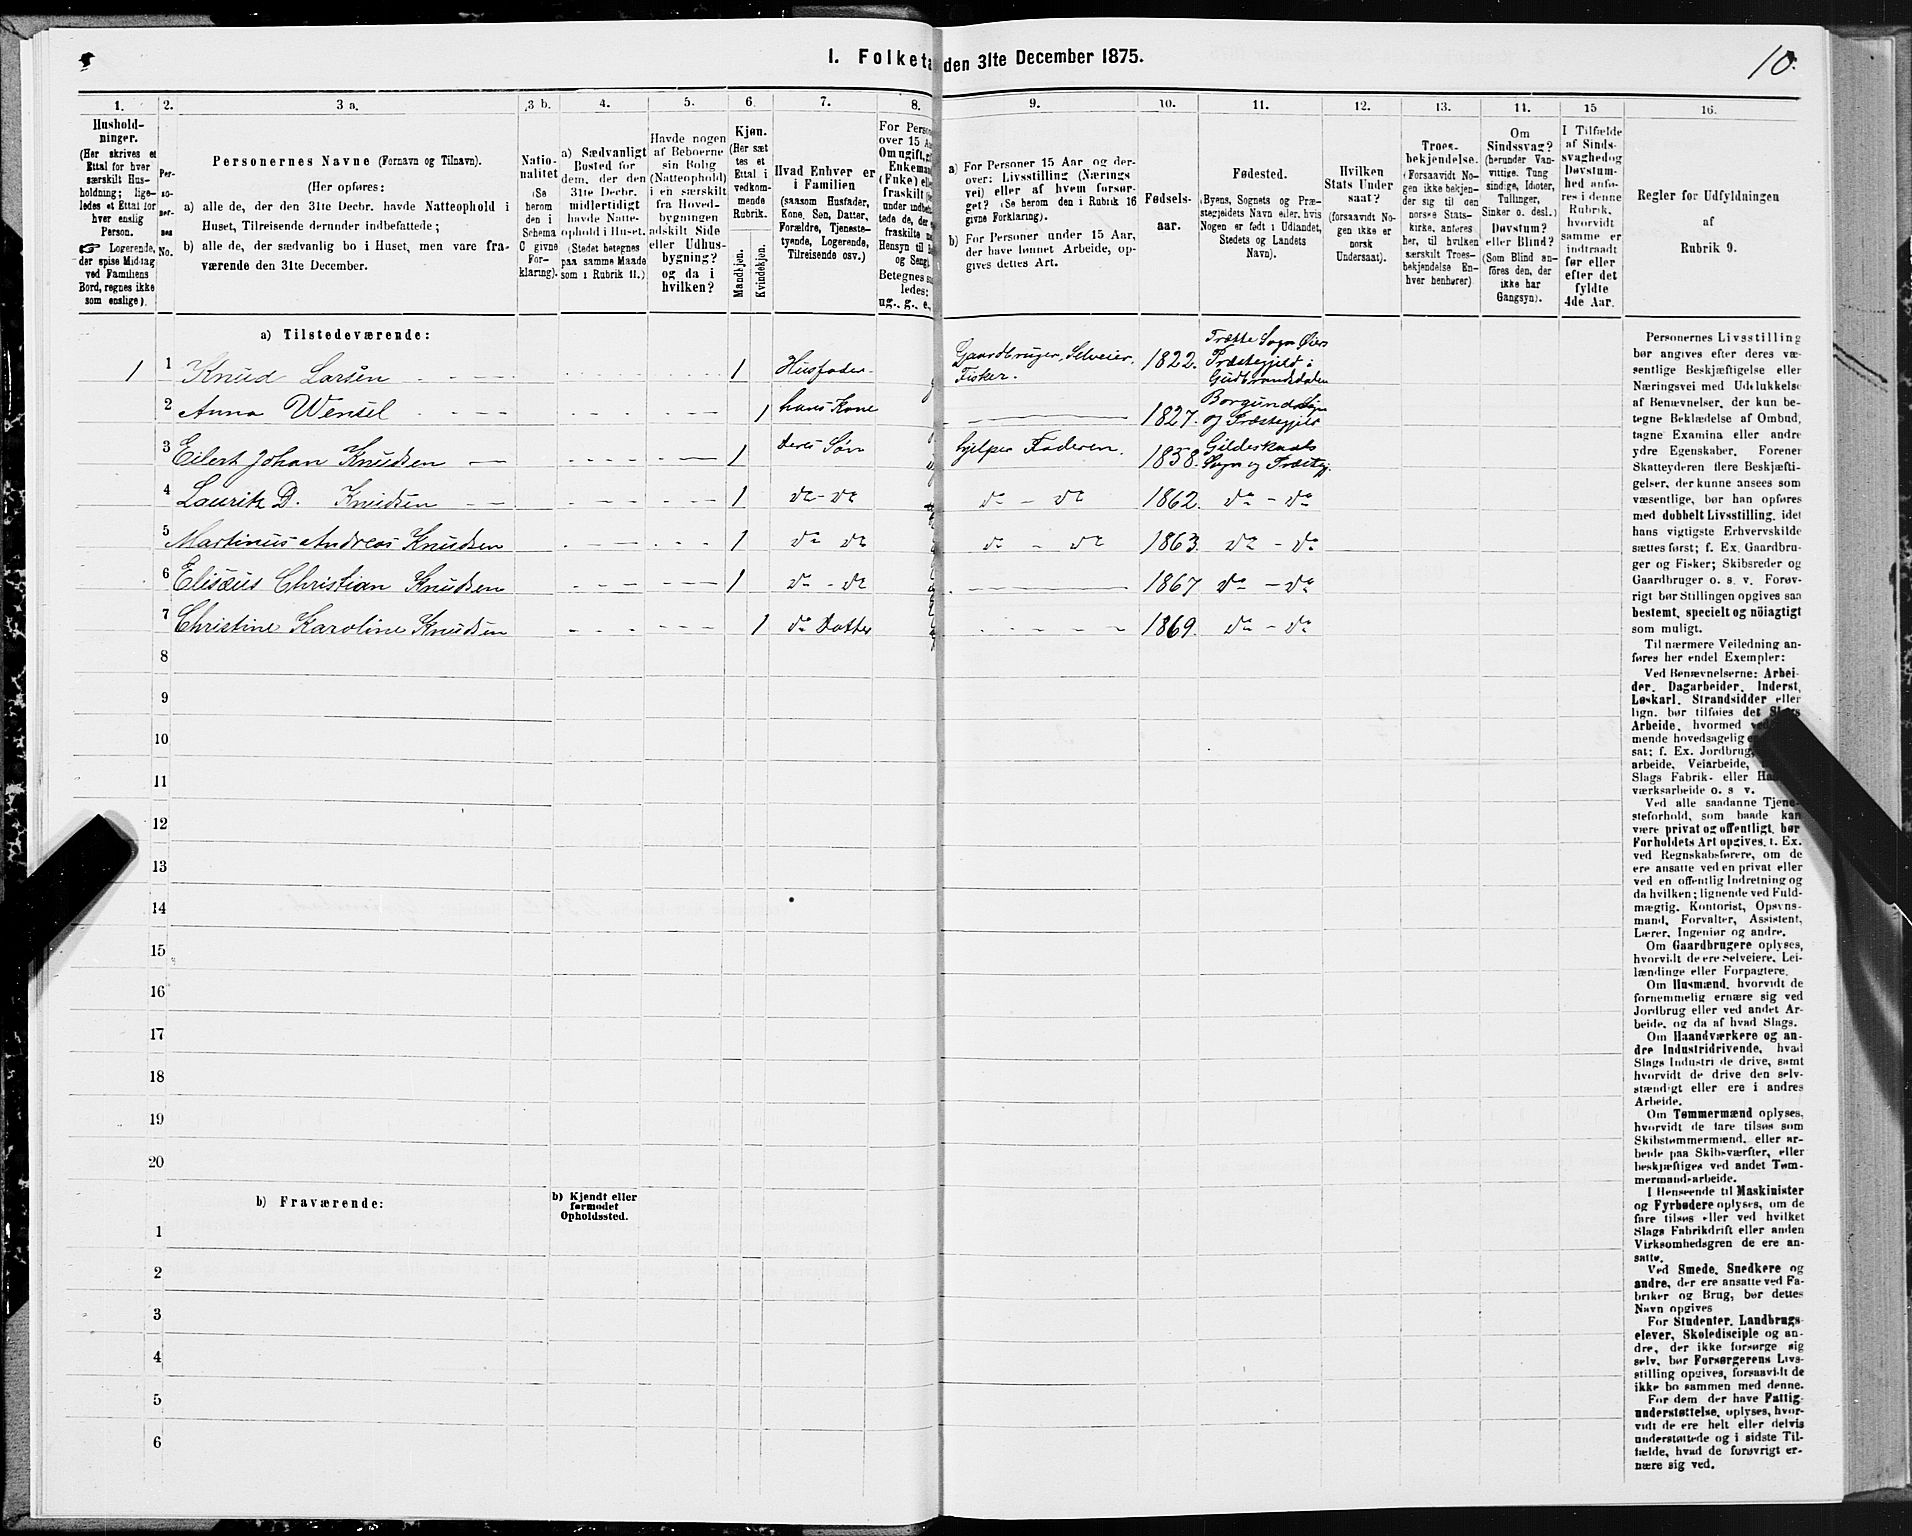 I. Folketæ den 31te December 1875.
10.
1.
2.
3 a.
3 b.
4.
5.
6.
7.
8.
9.
10.
11.
12.
13.
14.
15
16.
Hushold-
ninger.
(Her skrives et
Ettal for hver
særskilt Hus-
holdning; lige-
ledes et Ettal for
hver enslig
Person.
Logerende,
der spise Middag
ved Familiens
Bord, regnes ikke
som enslige).
Per-
so-
ner-
nes
No.
Personernes Navne (Fornavn og Tilnavn).
(Her opføres:
a) alle de, der den 31te Decbr. havde Natteophold i
Huset, Tilreisende derunder indbefattede;
b) alle de, der sædvanlig bo i Huset, men vare fra-
værende den 31te December.
Natio-
nalitet
(Se
herom
den i
Schema
C givne
For-
klaring).
a) Sædvanligt
Bosted for
dem, der den
31te Decbr.
midlertidigt
havde Natte-
ophold i Huset.
(Stedet betegnes
paa samme Maade
som i Rubrik 11.)
Havde nogen
af Beboerne
sin Bolig
(Natteophold)
i en særskilt
fra Hoved-
bygningen
adskilt Side
eller Udhus-
bygning?
og da i
hvilken?
Kjøn.
(Her sæt
tes et
Ettal i
vedkom-
mende
Rubrik.
Mandkjøn.
Kvindekjøn.
Hvad Enhver er
i Familien
(saasom Husfader,
Kone, Søn, Datter,
Forældre, Tjeneste-
tyende, Logerende,
Tilreisende osv.)
For Perso
over 15 Aa
Om ugift, g
Enkeman
(Enke) elle
fraskilt
under indbe
tede de, der
fraskilte
Hensyn til
og Seng).
Betegnes s
ledes:
ug., g., e.,
a) For Personer 15 Aar og der-
over: Livsstilling (Nærings
vei) eller af hvem forsør-
get? (Se herom den i Rubrik 16
givne Forklaring).
b) For Personer under 15 Aar,
der have lønnet Arbeide, op-
gives dettes Art.
Fødsels-
aar.
Fødested.
(Byens, Sognets og Præ-
stegjeldets Navn eller, hvis
Nogen er født i Udlandet,
Stedets og Landets
Navn).
Hvilken
Stats Under
saat?
(forsaavidt No-
gen ikke er
norsk
Undersaat).
Troes-
bekjendelse.
(Forsaavidt No-
gen ikke bekjen-
der sig til den
norske Stats-
kirke, anføres
her, til hvilken
særskilt Troes-
bekjendelse En-
hver henhører)
Om
Sindssvag?
(herunder Van-
vittige, Tung
sindige, Idioter,
Tullinger,
Sinker o. desl.)
Døvstum?
eller Blind?
(Som Blind an-
føres den, der
ikke har
Gangsyn).
I Tilfælde
af Sinds-
svaghed og
Døvstum-
hed anfø-
res i denne
Rubrik,
hvorvidt
samme er
indtraadt
før eller
efter det
fyldte
4de Aar.
Regler for Udfyldningen
af
Rubrik 9.
a) Tilstedeværende:
1 1 Knud Larsen 1 Husfader Gaardbruger, Selveier. Fisker. 1822. Trætte Sogn Øiers Præstegjeld i Gudbrandsdalen
2 Anna Wensel 1 hans Kone 1827. Borgund Sogn og Præstegjeld
3 Eilert Johan Knudsen 1 deres Søn hjelper Faderen. 1858. Gildeskaals Sogn og Præstegj.
4 Lauritz D. Knudsen 1 do - do do - do 1862. do - do
5 Martinus Andreas Knudsen 1 do do do - do 1863. do - do
6 Elisæus Christian Knudsen 1 do - do 1867 do - do
7 Christine Karoline Knudsen 1 do Datter 1869. do - do
8
9
10
11
12
13
14
15
16
17
18
19
20
b) Fraværende:
b) Kjendt eller
formodet
Opholdssted.
1
2
3
4
5
6
Personernes Livsstilling
bør angives efter deres væ-
sentlige Beskjæftigelse eller
Næringsvei med Udelukkelse
af Benævnelser, der kun be-
tegne Beklædelse af Ombud,
tagne Examina eller andre
ydre Egenskaber. Forener
Skatteyderen flere Beskjæfti-
gelser, der kunne ansees som
væsentlige, bør han opføres
med dobbelt Livsstilling, idet
hans vigtigste Erhvervskilde
sættes først; f. Ex. Gaardbru-
ger og Fisker; Skibsreder og
Gaardbruger o. s. v. Forøv-
rigt bør Stillingen opgives saa
bestemt, specielt og nöiagtigt
som muligt.
Til nærmere Veiledning an-
føres her endel Exempler:
Ved Benævnelserne: Arbei-
der, Dagarbeider, Inderst,
Løskarl, Strandsidder eller
lign. bør tilføies det Slags
Arbeide, hvormed
mende hovedsagelig
sat; f. Ex. Jordbrug,
arbeide, Veiarbeide,
Slags Fabrik- eller
værksarbeide o. s v.
Ved alle saadanne Tjene-
steforhold, som baade kan
være privat og offentligt, bør
Forholdets Art opgives, f. Ex.
ved Regnskabsførere, om de
ere ansatte ved en privat eller
ved en offentlig Indretning og
da hvilken; lignende ved Fuld-
mægtig, Kontorist, Opsyns-
mand, Forvalter, Assistent,
Lærer, Ingeniør og andre.
Om Gaardbrugere oplyses,
hvorvidt de ere Selveiere, Lei-
lændinge eller Forpagtere.
Om Husmænd, hvorvidt de
fornemmelig ernære sig ved
Jordbrug eller ved andet Ar-
beide, og da af hvad Slags.
Om Haandværkere og an-
dre Industridrivende, hvad
Slags Industri de drive, samt
hvorvidt de drive den selv-
stændigt eller ere i andres
Arbeide.
Om Tømmermænd oplyses,
hvorvidt de fare tilsøs som
Skibstømmermænd, eller ar-
beide paa Skibsværfter, eller
beskjæftiges ved andet Tøm-
mermandsarbeide.
I Henseende til Maskinister
og Fyrbødere oplyses, om de
fare tilsøs eller ved hvilket
Slags Fabrikdrift eller anden
Virksomhedsgren de ere an-
satte.
Ved Smede, Snedkere og
andre, der ere ansatte ved Fa-
briker og Brug, bør dettes
Navn opgives
For Studenter, Landbrugs
elever, Skoledisciple og an-
dre, der ikke forsørge sig
selv, bør Forsørgerens Livs-
stilling opgives, forsaavidt de
ikke bo sammen med denne.
For dem, der have Fattig-
understøttelse, oplyses, hvor-
vidt de ere helt eller delvis
understøttede og i sidste Til-
fælde, hvad de forøvrigt er-
nære sig ved.